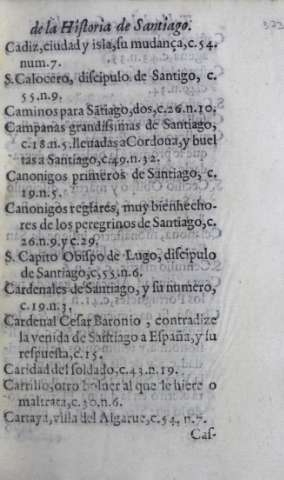 de la Historia de Santiago.
Cadiz, ciudad y isla, su mudança, c. 54.
num. 7.
S. Calocero, discipulo de Santigo, c.
55. n. 9.
Caminos para Sãtiago, dos, c. 26. n. 10.
Campanas grandissimas de Santiago,
c. 18. n. 5. lleuadas a Cordoua, y buel
tas a Santiago, c. 49. n. 32.
Canonigos primeros de Santiago, c.
19. n. 5.
Canonigos reglares, muy bienhecho-
res de los peregrinos de Santiago, c.
26. n. 9. y c. 29.
S. Capito Obispo de Lugo, discipulo
de Santiago, c, 55. n. 6.
Cardenales de Santiago, y su numero,
c. 19. n. 3.
Cardenal Cesar Baronio, contradize
la venida de Santiago a España, y su
respuesta, c. 15.
Caridad del soldado, c. 43. n. 19.
Carrillo, otro boluer al que le hiere o
maltrata, c. 30. n. 6.
Cartaya, villa del Algarue, c. 54, n. 7.
Cas-